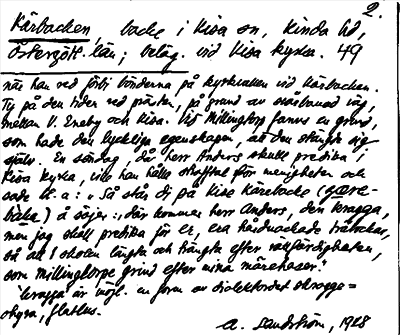 2.
Kärbacken, backe i Kisa sn, Kinda hd,
Östergötl. län; beläg. vid Kisa kyrka. 49
när han red förbi bönderna på kyrkvallen vid Kärbacken.
Ty på den tiden red prästen, på grund av obanad väg,
mellan V. Eneby och Kisa. Vid Millingtorp fanns en grind,
som hade den lyckliga egenskapen, att den stängde sig
själv. En söndag, då herr Anders skulle predika i
Kisa kyrka, han hålla straffta[l] för menigheten och
sade bl. a: "Så står di på Kise kärebacke (
backa) å säjer: där kommer herr Anders, den kragga,
men jag skall predika för er, era hårdnackade träbockar,
så att I skolen längta och trängta efter rättfärdigheten,
som Millingtorps grind efter mina märehaser."
'kragga' är möjl. en form av dialektordet skragge =
A. Sandström, 1928